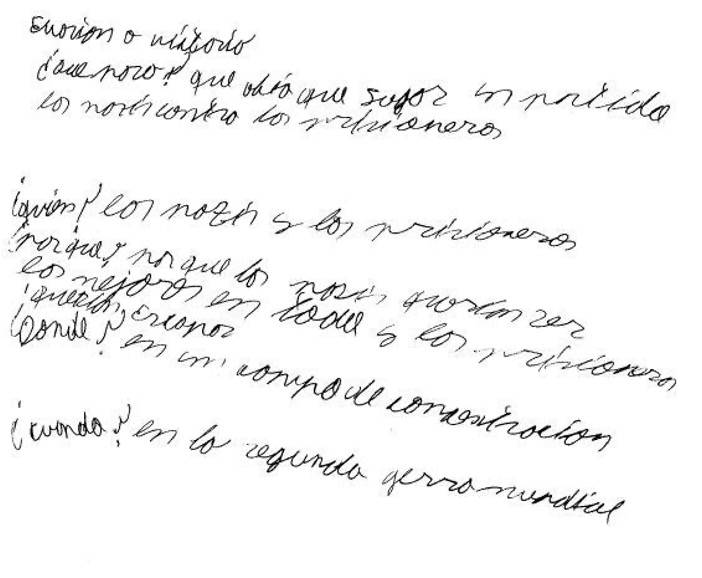 Evasion o victoria
¿que paso? que abia que sugar un partido
los nazis contra los prisioneros
¿quien? los nazis y los prisioneros
¿porque? porque los nazis querian zer
los mejores en todo y los prisioneros
querian
¿Donde? en un campo de consentracion
¿cuando? en la segunda gerra mundial